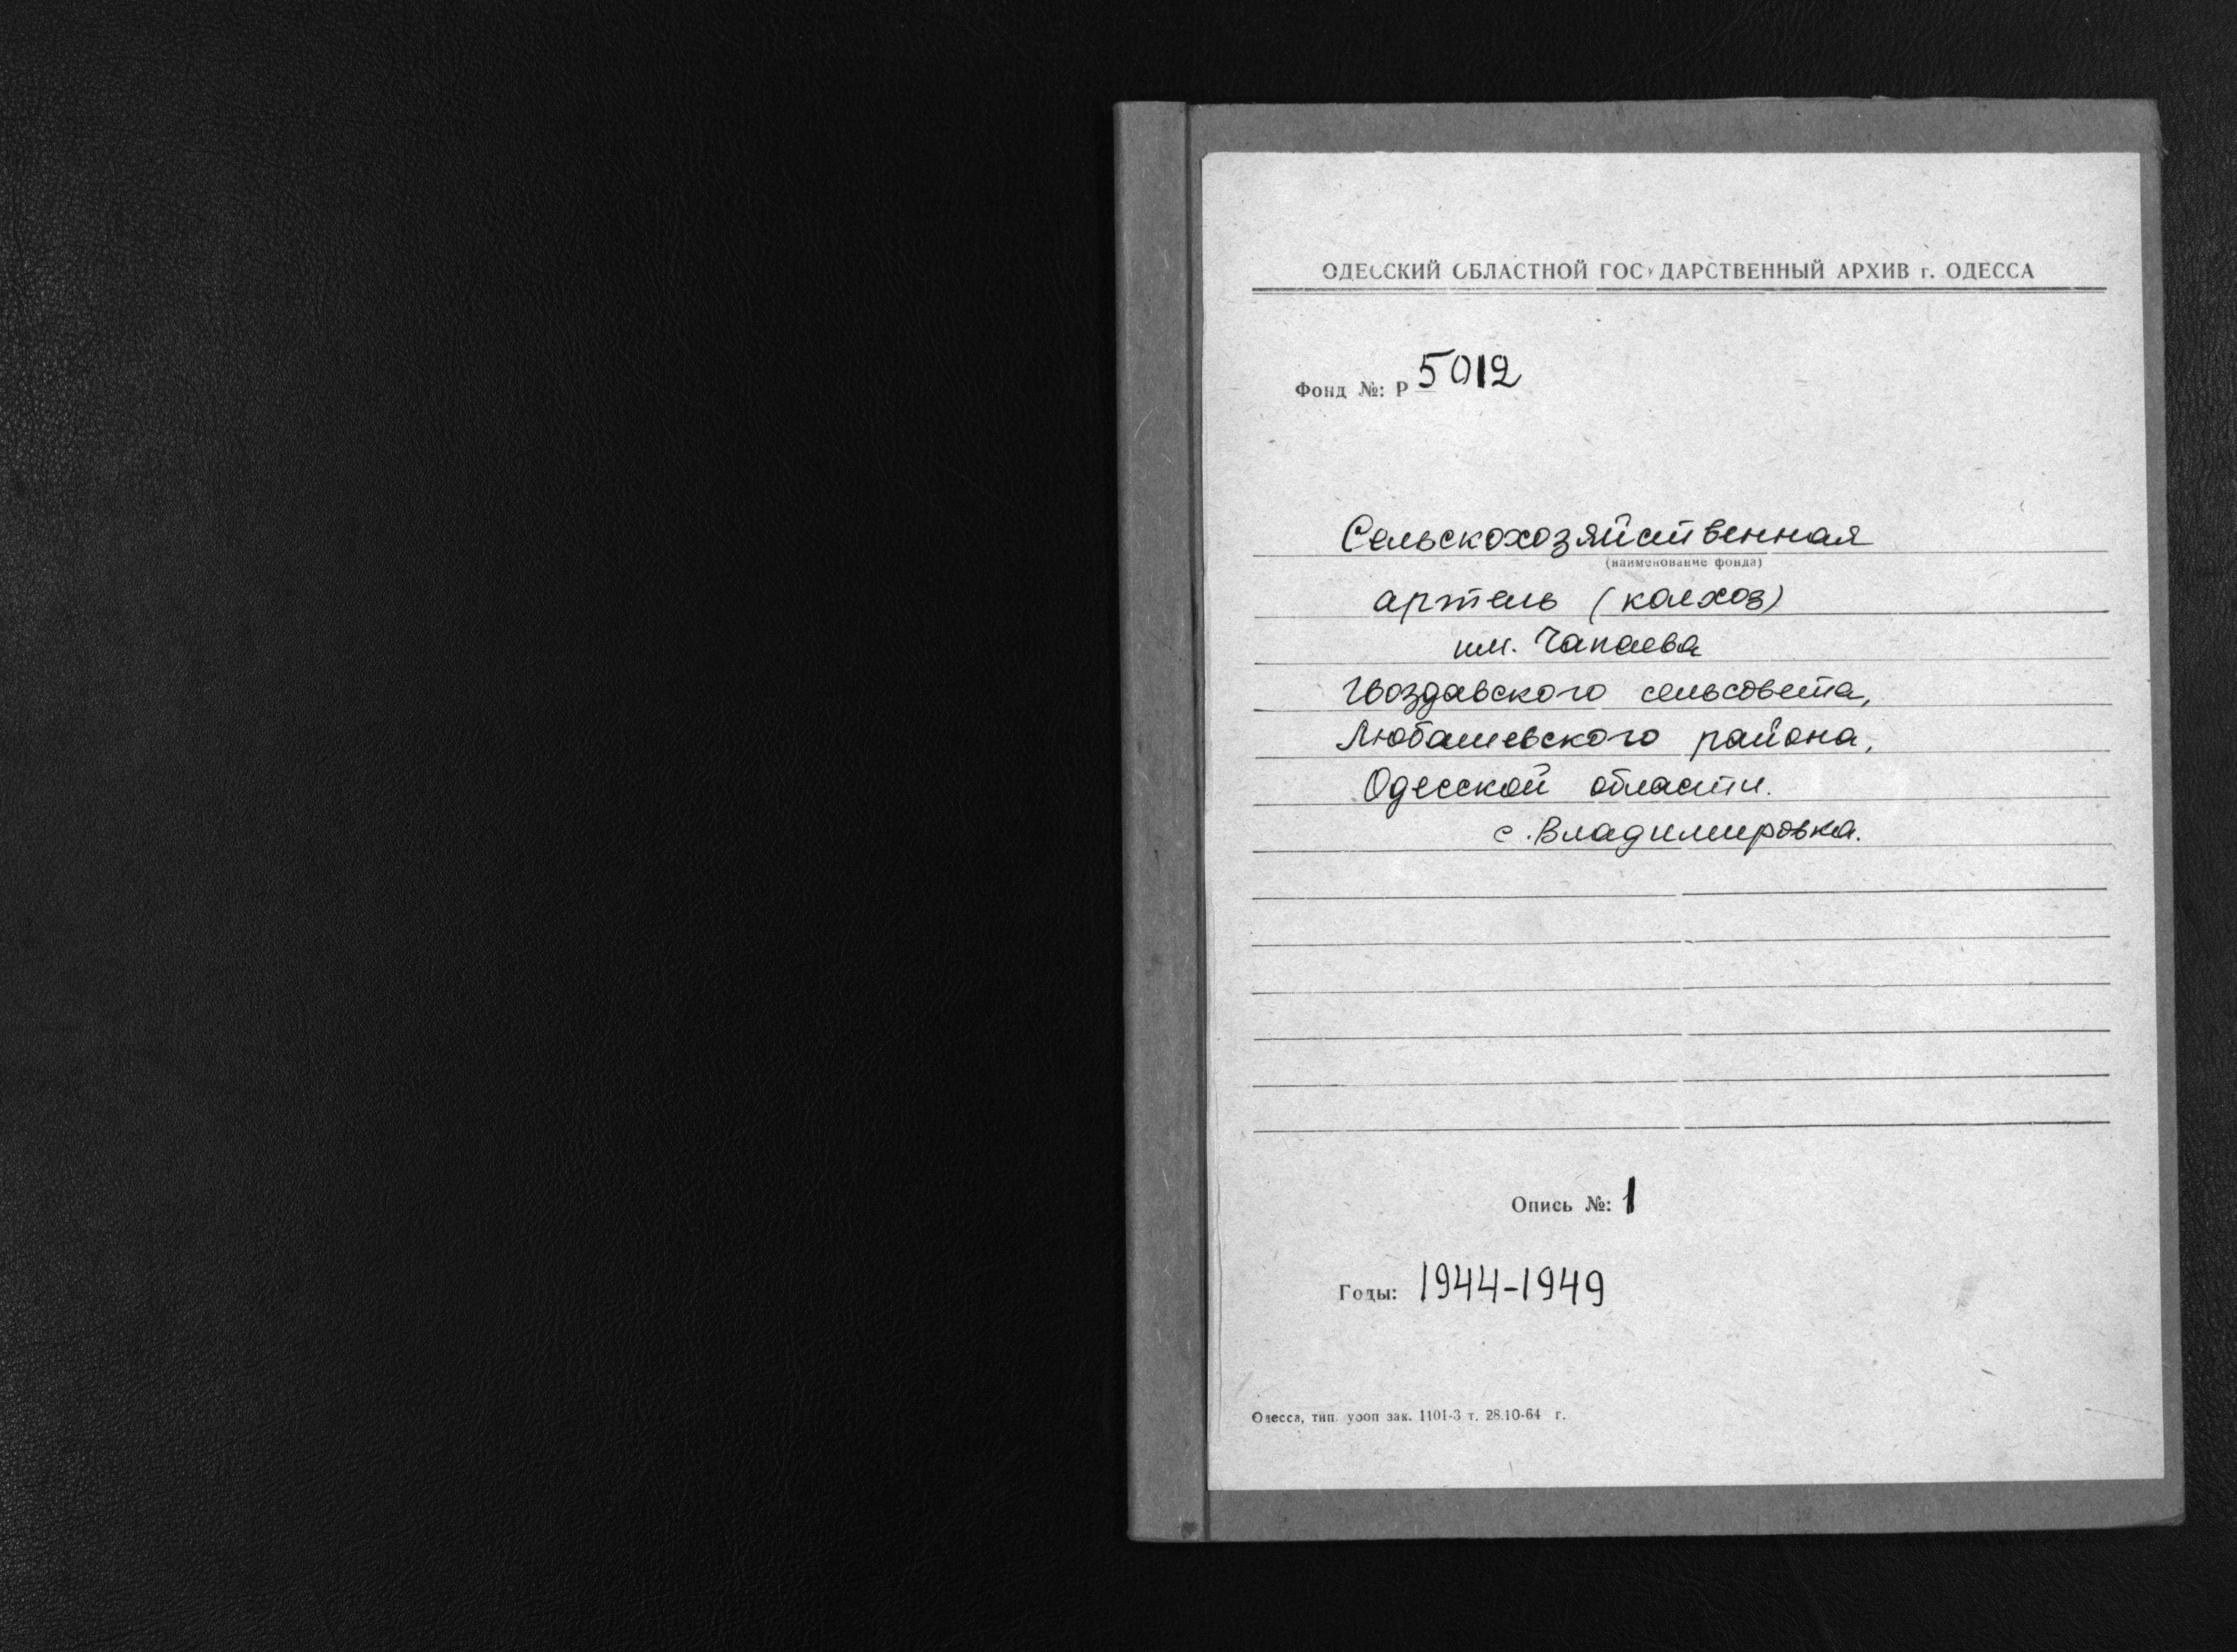 ОДЕССКИЙ ОБЛАСТНОЙ ГОСУДАРСТВЕННЫЙ АРХИВ г. ОДЕССА
Фонд №: Р 5012
Сельскохозяйственная
(наименование фонда)
артель (колхоз)
им. Чапаева
Гвоздавского сельсовета,
Любашевского района,
Одесской области.
с. Владимировка.
Опись №: 1
Годы: 1944-1949
Одесса, тип. уооп зак. 1101-3 т. 28.10-64 г.